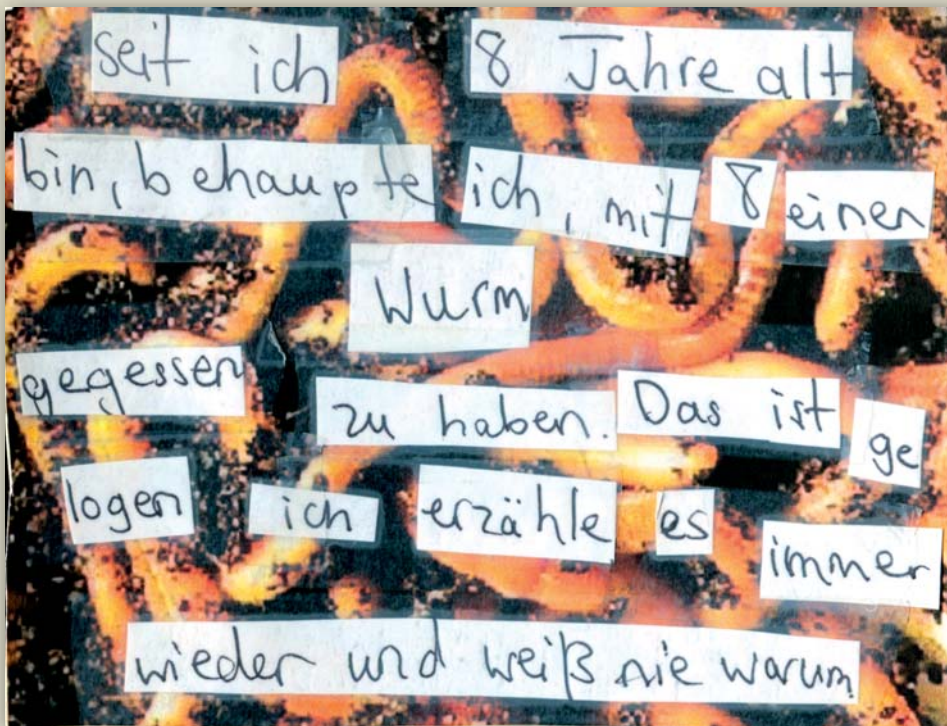 seit ich 8 Jahre alt
bin, behaupte ich, mit 8 einen
Wurm
gegessen zu haben. Das ist ge
logen ich erzähle es immer
wieder und weiß nie warum